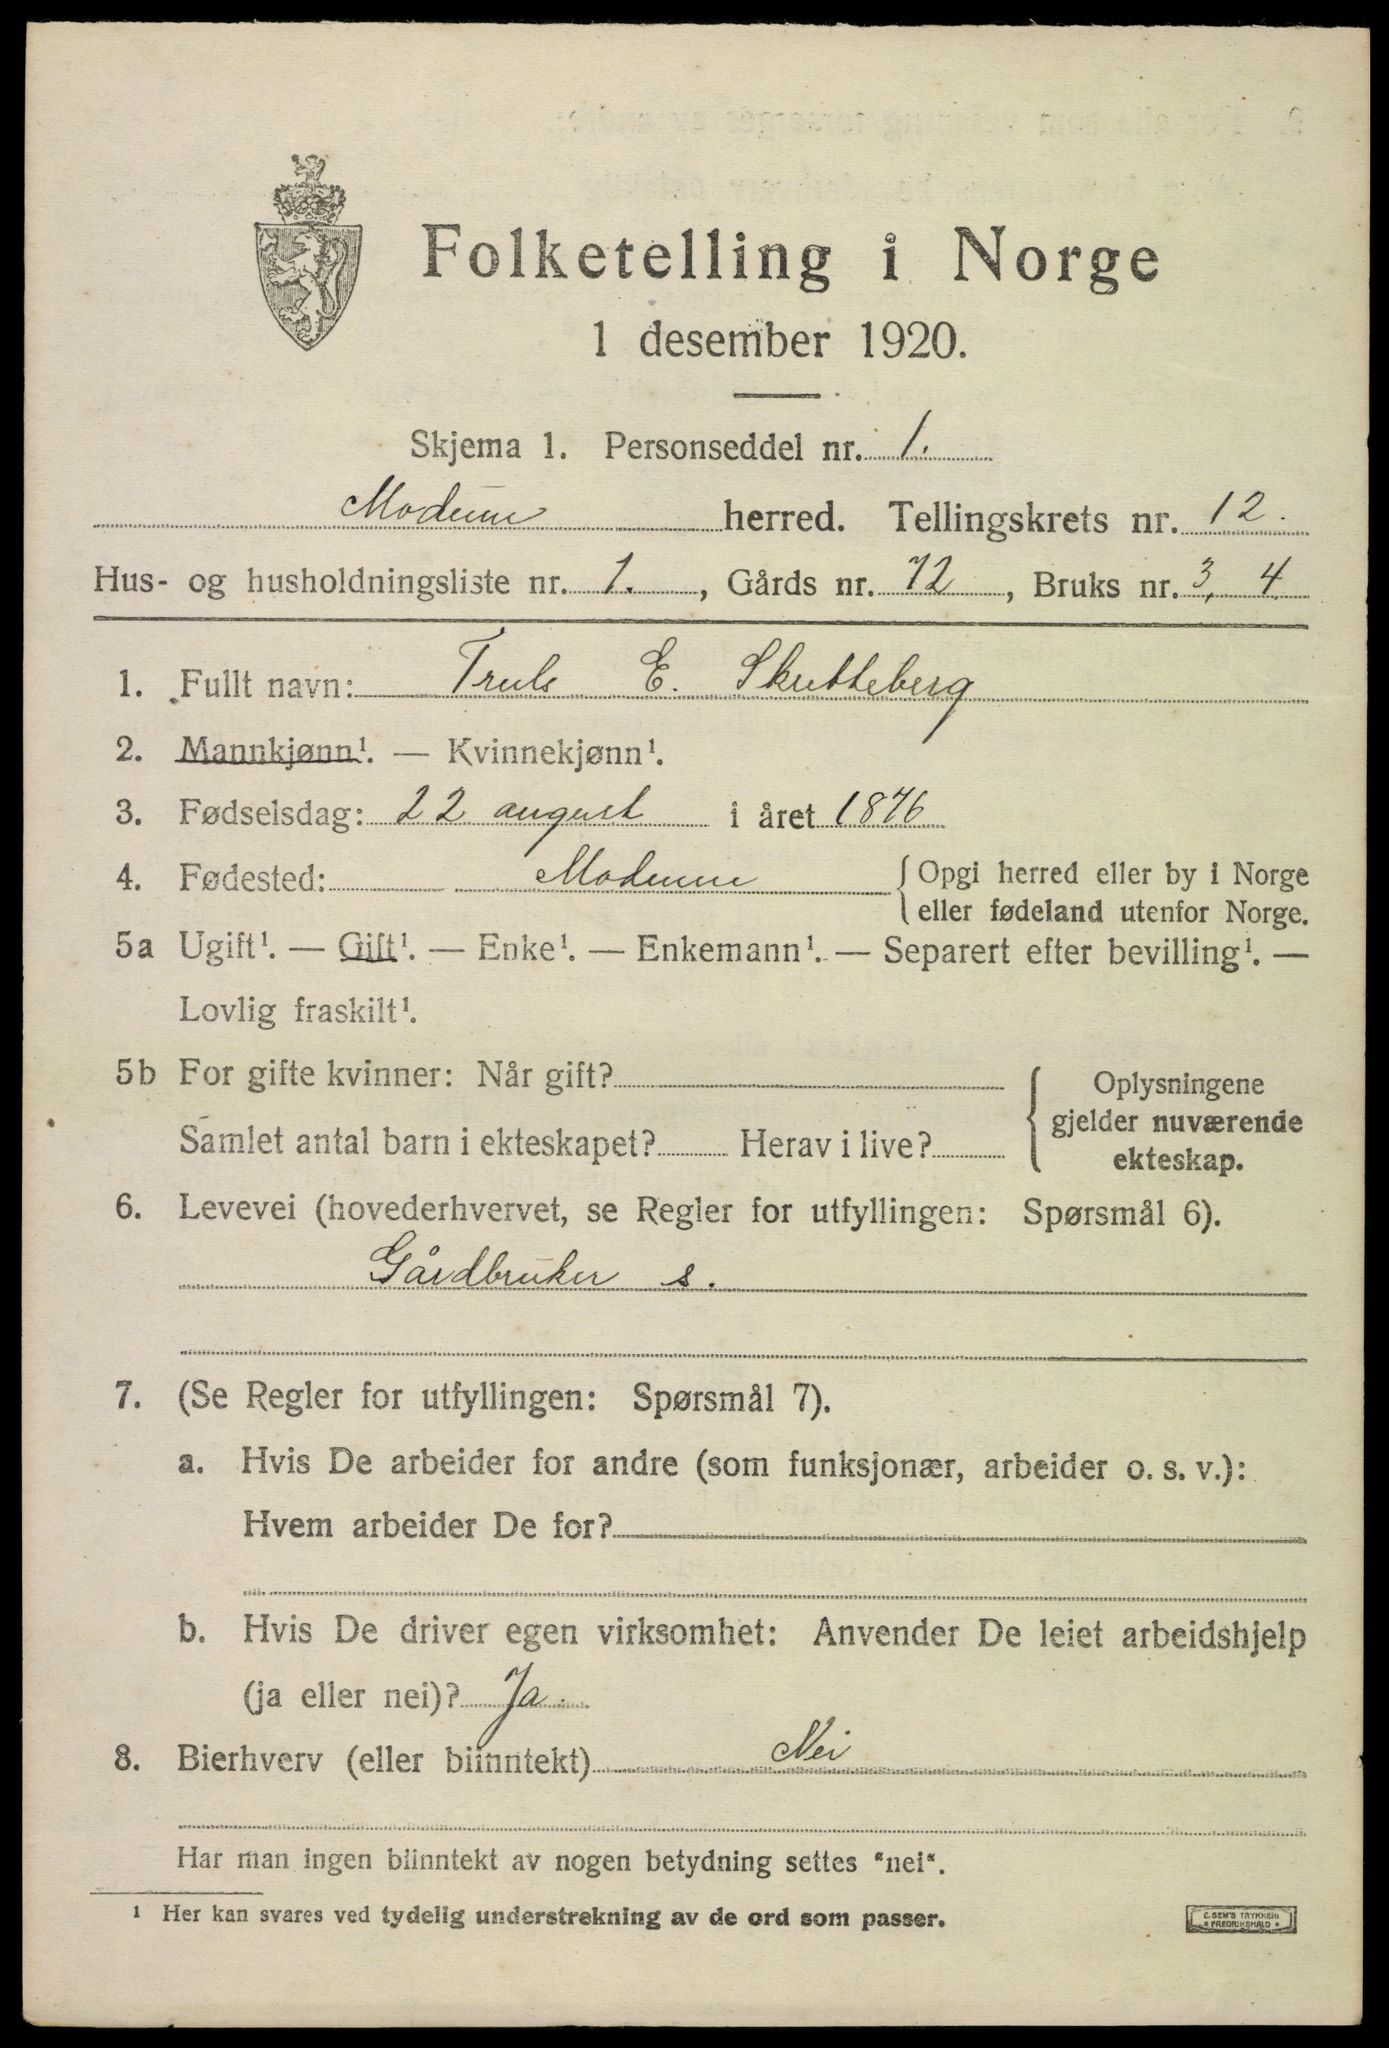 Folketelling i Norge
1 desember 1920.
Skjema 1. Personseddel nr. 1.
Modum herred. Tellingskrets nr. 12.
Hus- og husholdningsliste nr. 1., Gårds nr. 72, Bruks nr. 3, 4
1. Fullt navn: Truls E. Skutteberg
2. Mannkjønn¹. — Kvinnekjønn¹.
3. Fødselsdag: 22 august i året 1876
4. Fødested: Modum { Opgi herred eller by i Norge
eller fødeland utenfor Norge.
5a Ugift¹. — Gift¹. — Enke¹. — Enkemann¹. — Separert efter bevilling¹. —
Lovlig fraskilt¹.
5b For gifte kvinner: Når gift? { Oplysningene
gjelder nuværende
Samlet antal barn i ekteskapet? Herav i live? ekteskap.
6. Levevei (hovederhvervet, se Regler for utfyllingen: Spørsmål 6).
Gårdbruker s.
7. (Se Regler for utfyllingen: Spørsmål 7).
a. Hvis De arbeider for andre (som funksjonær, arbeider o. s. v.):
Hvem arbeider De for?
b. Hvis De driver egen virksomhet: Anvender De leiet arbeidshjelp
(ja eller nei)? Ja.
8. Bierhverv (eller biinntekt) Nei
Har man ingen biinntekt av nogen betydning settes "nei".
¹ Her kan svares ved tydelig understrekning av de ord som passer.
E. SEM'S TRYKKERI
• FREDRIKSHALD •